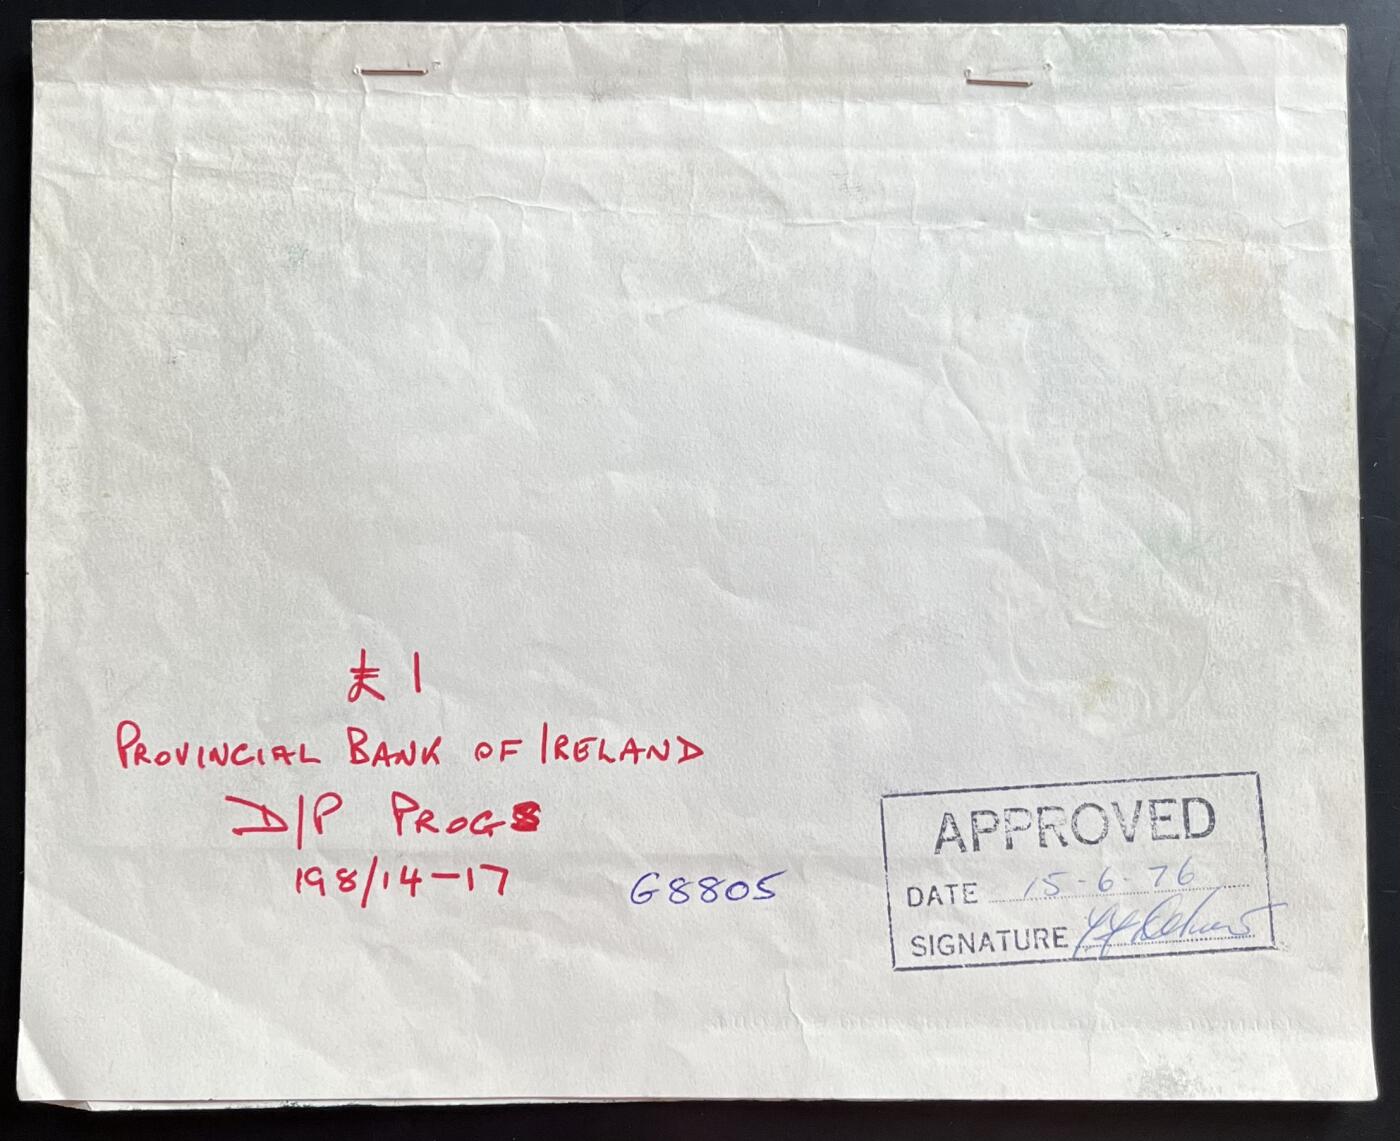 £1
PROVINCIAL BANK OF IRELAND
D/P PROGS
198/14-17
G8805
APPROVED
DATE 15-6-76
SIGNATURE